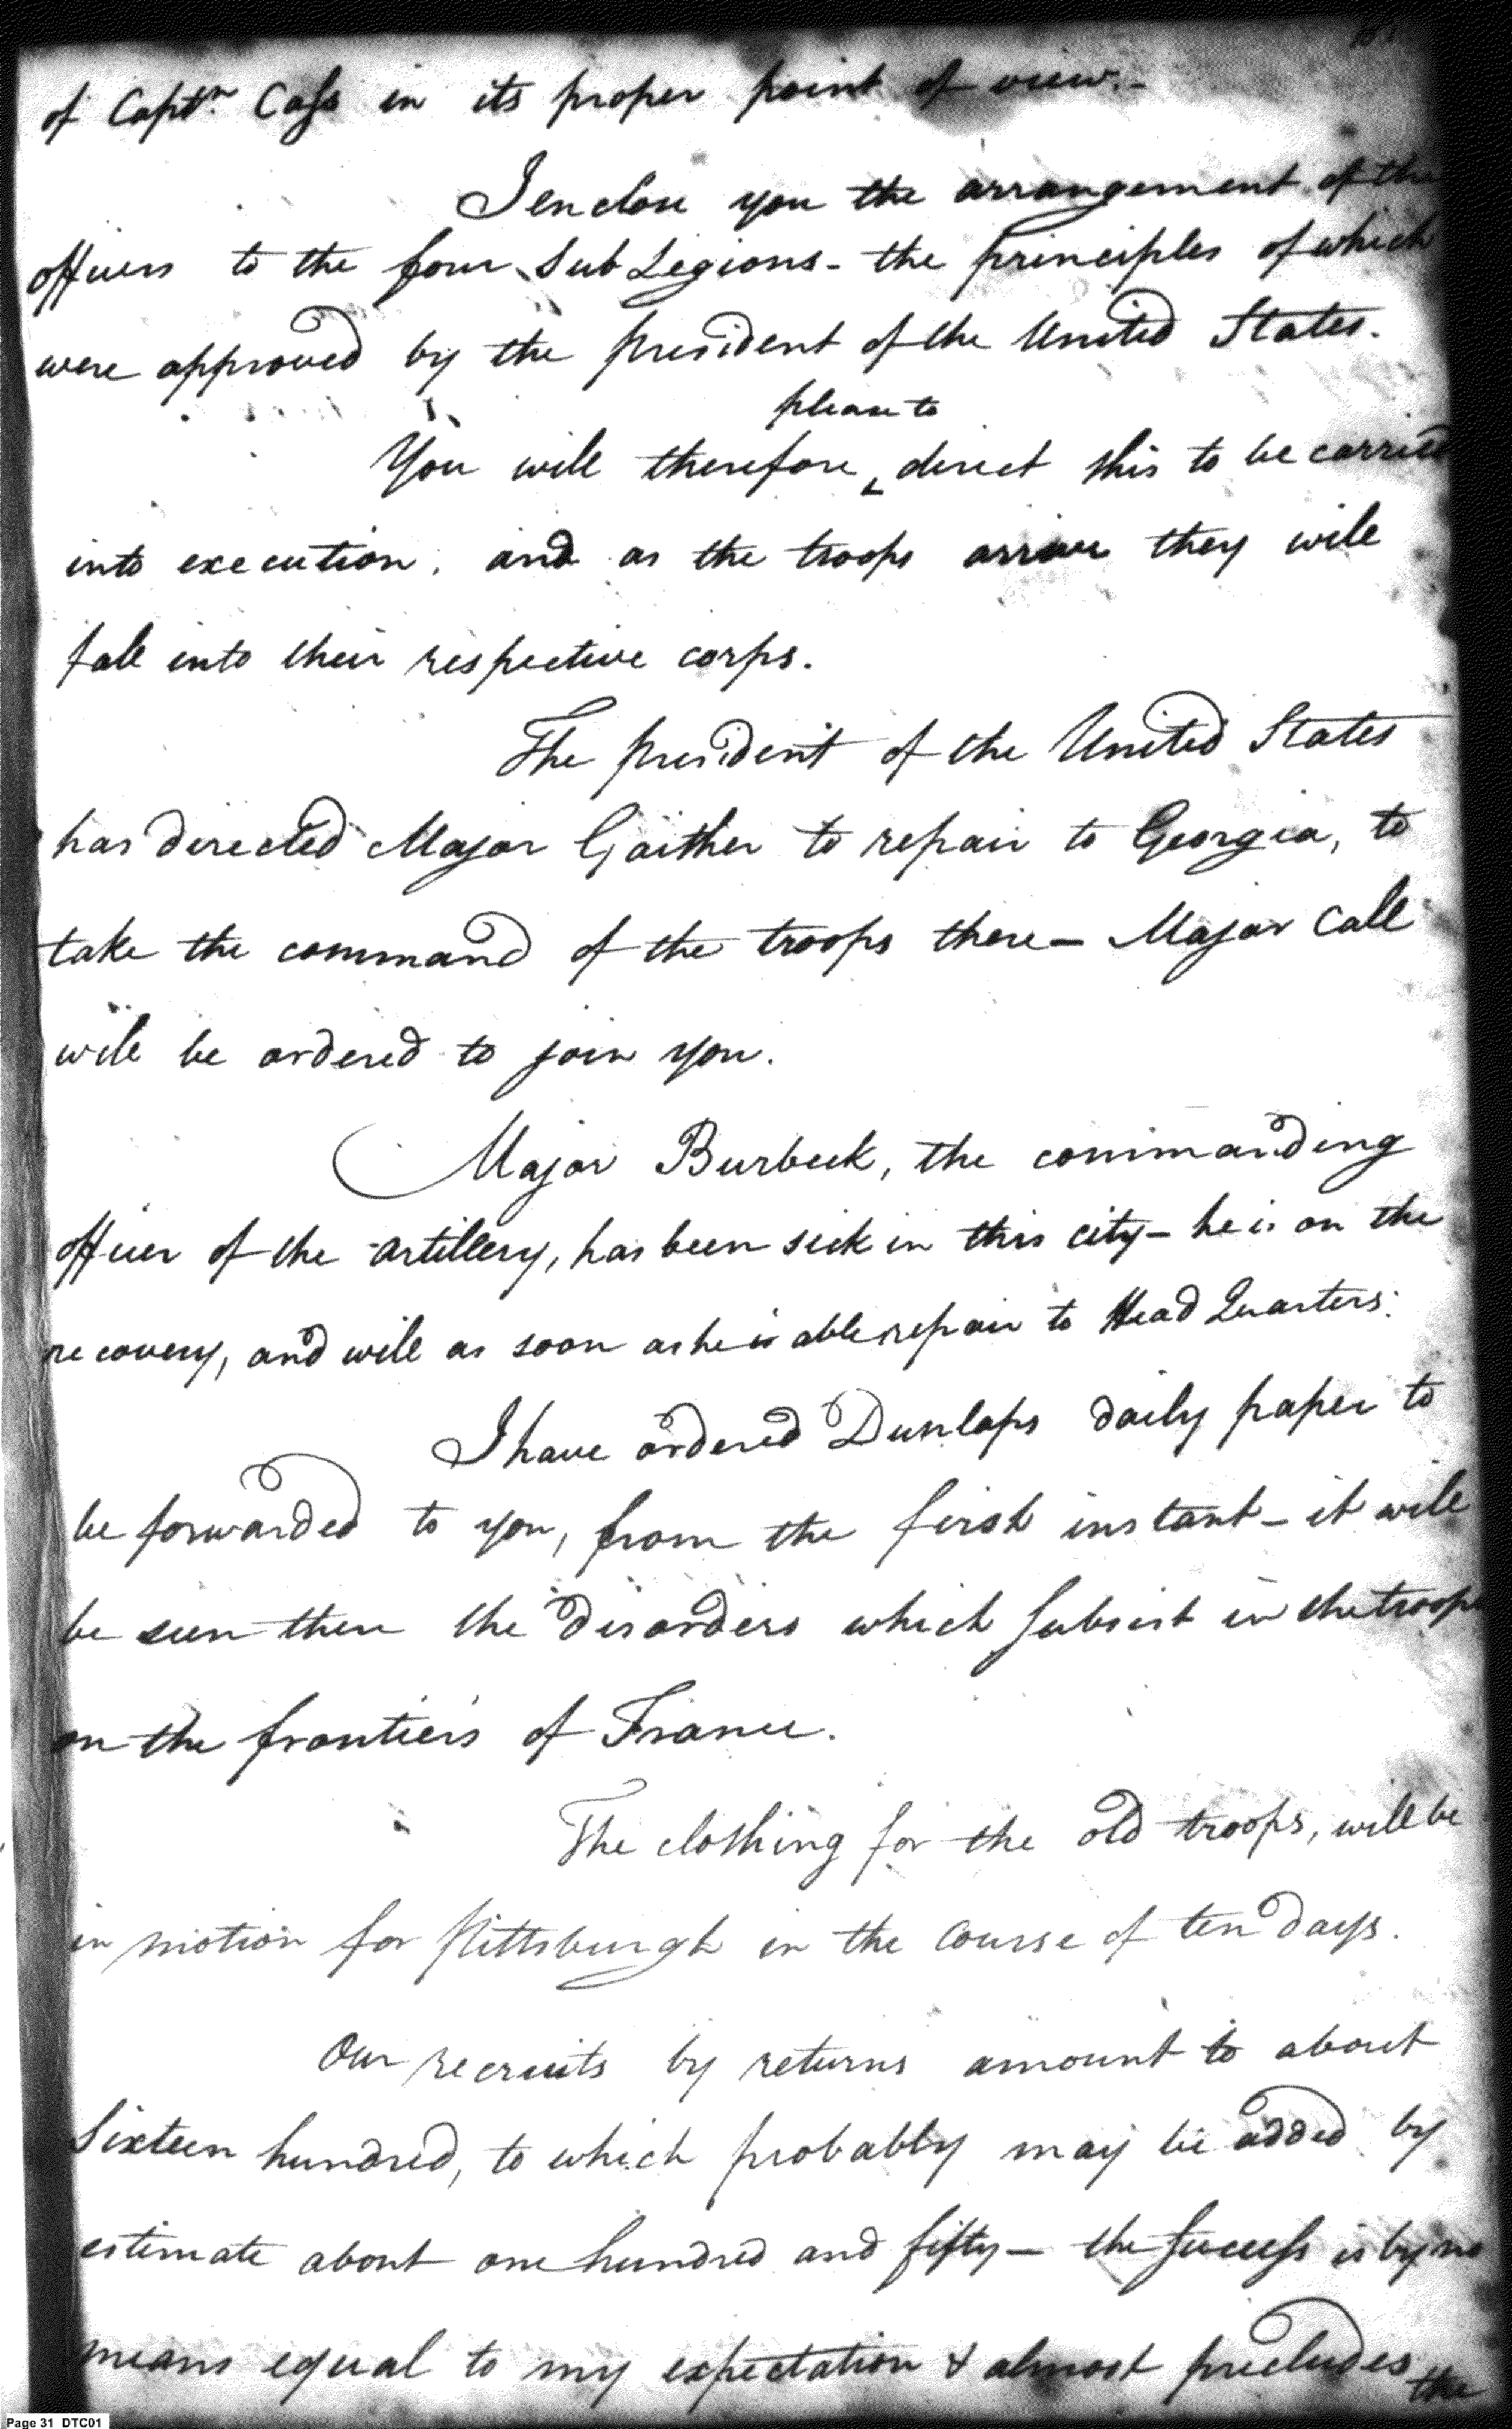 of Captn. Cass in its proper point of view.-
I enclose you the arrangement of the
officers to the four Sub Legions - the principles of which
were approved by the President of the United States.
please to
You will therefore direct this to be carried
into execution, and as the troops arrive they will
fall into their respective corps.
The President of the United States
has directed Major Gaither to repair to Georgia, to
take the command of the troops there - Major Call
will be ordered to join you.
Major Burbeck, the commanding
officer of the artillery, has been sick in this city - he is on the
recovery, and will as soon as he is able repair to Head Quarters.
I have ordered Dunlaps daily paper to
be forwarded to you, from the first instant - it will
be seen then the disorders which subsist in the troops
on the frontiers of France.
The clothing for the old troops, will be
in motion for Pittsburgh in the course of ten days.
Our recruits by returns amount to about
Sixteen hundred, to which probably may be added by
estimate about one hundred and fifty - the success is by no
means equal to my expectation & almost precludes
the
Page 31 DTC01